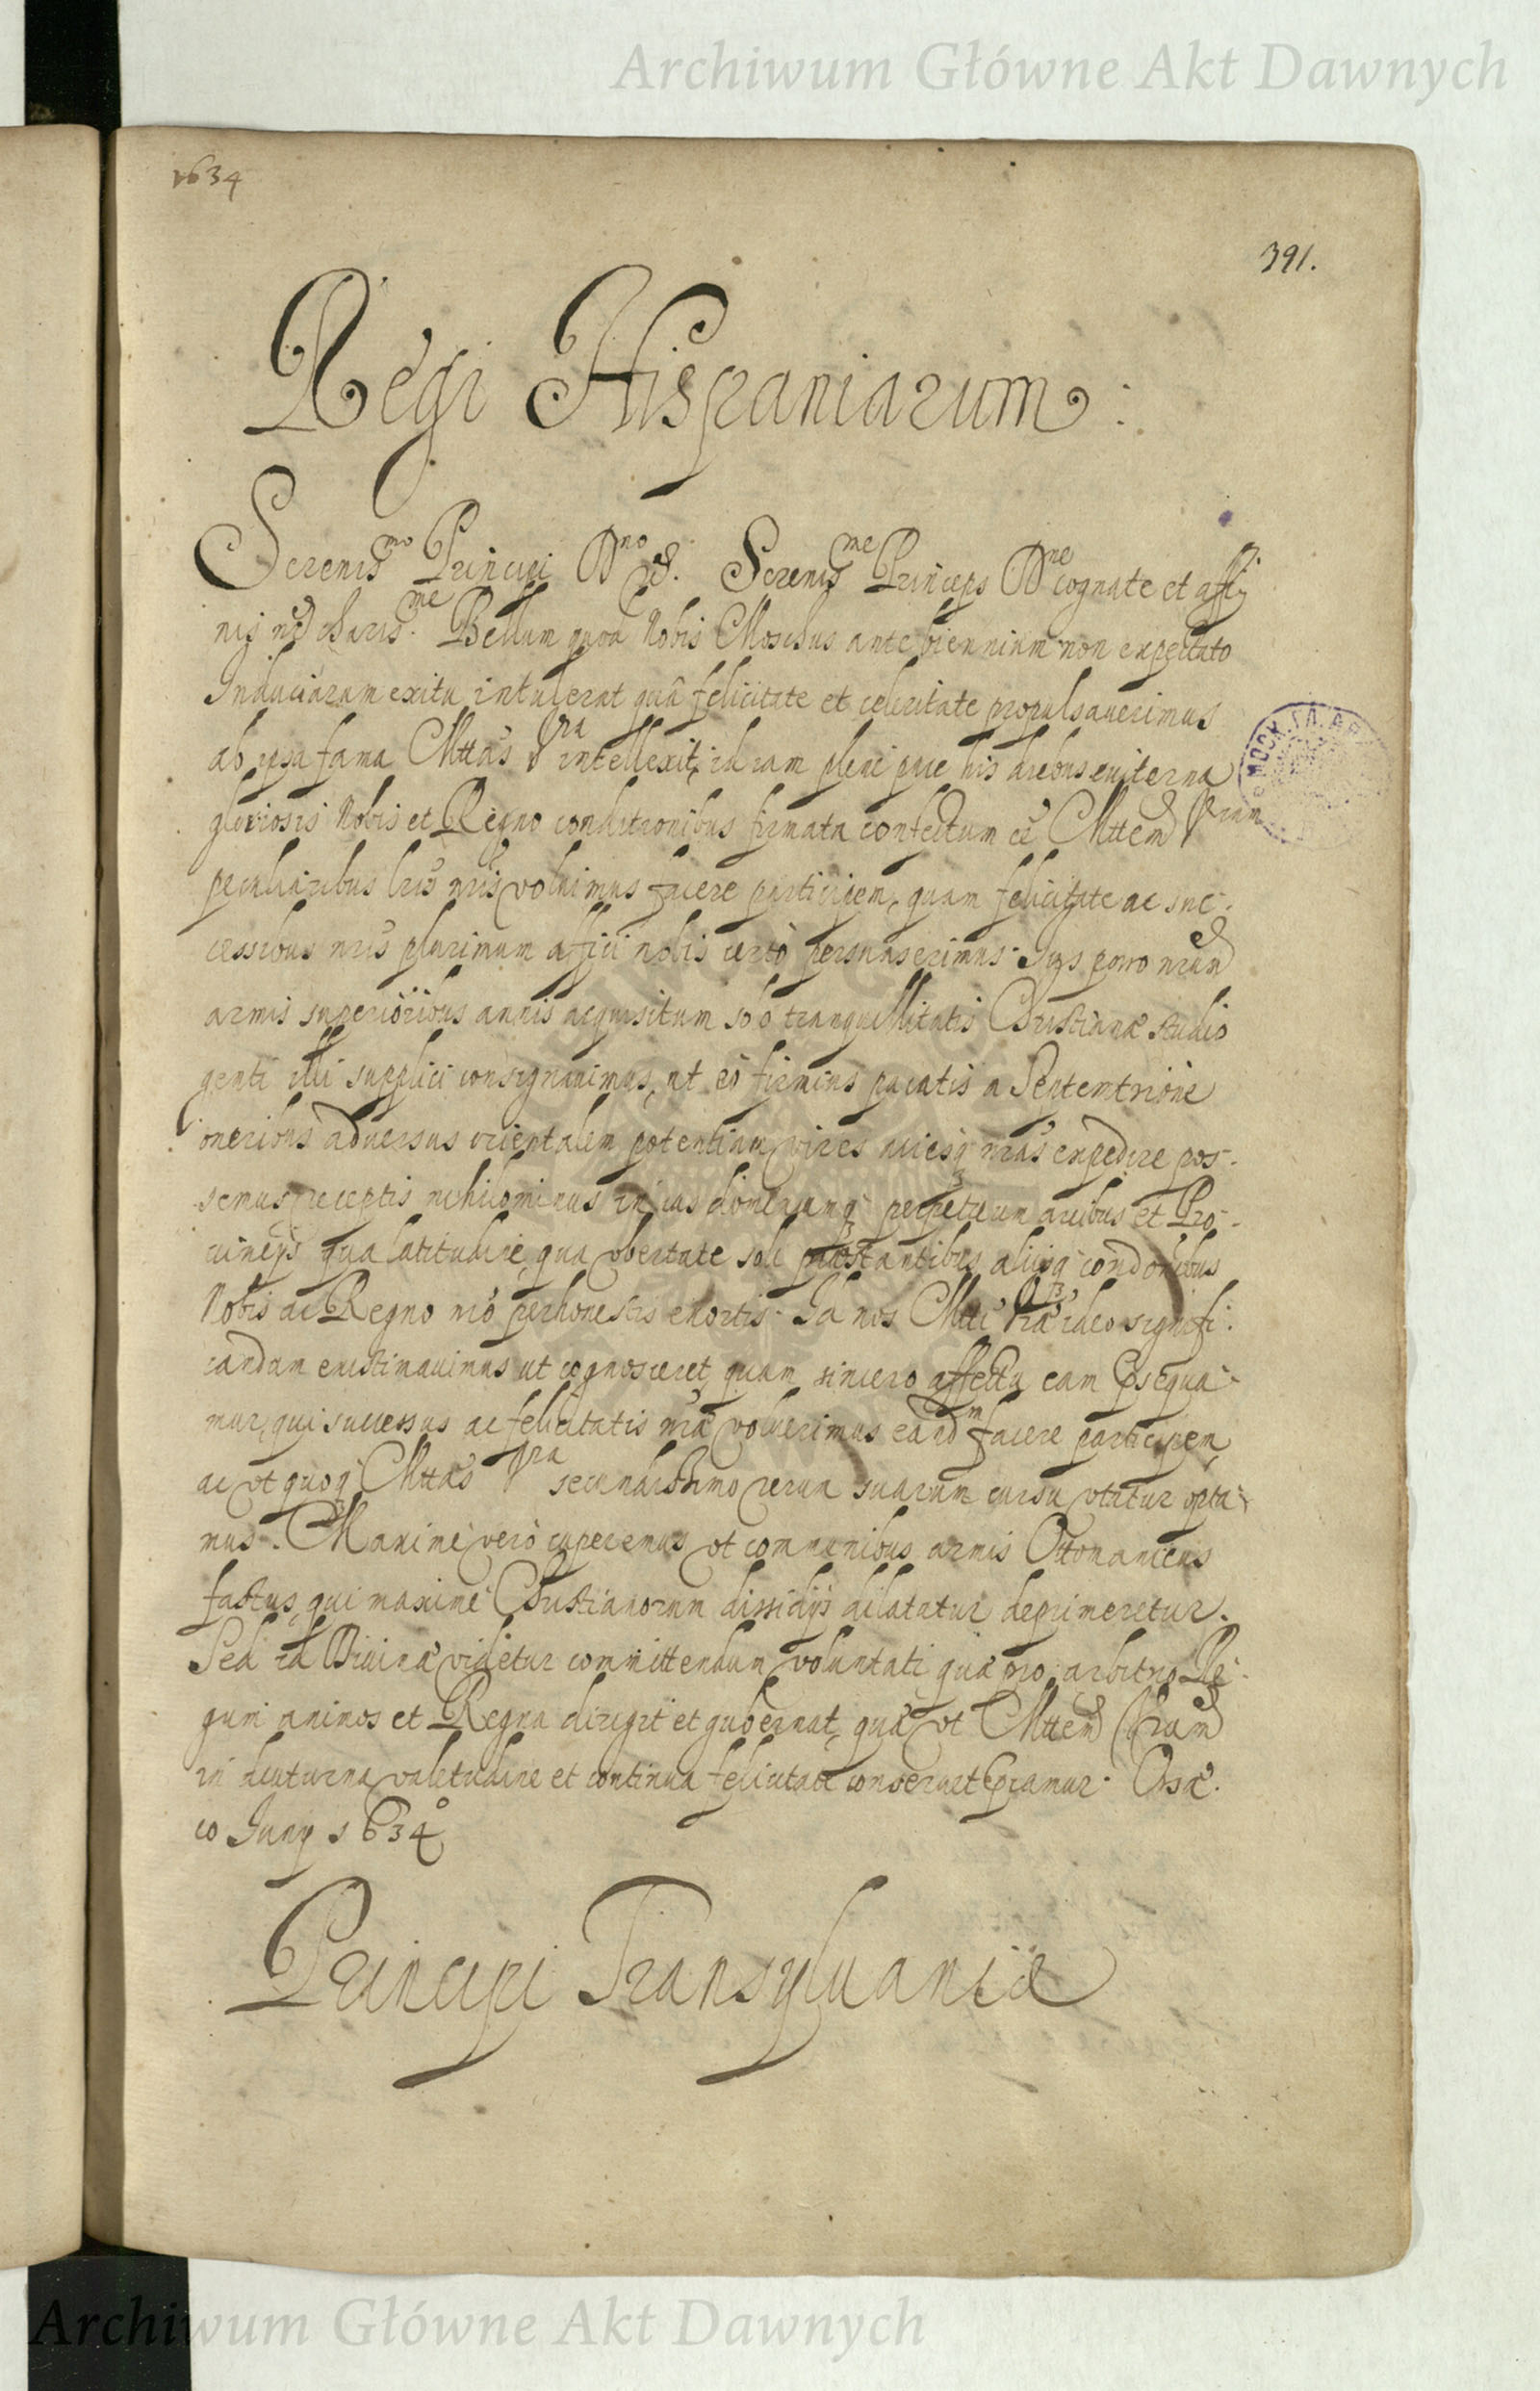 Archiwum Główne Akt Dawnych
1634
391.
Regi Hispaniarum:
Serenis mo Principi Dno etc. Serenis me Princeps Dne cognate et affi
nis nr charis me. Bellum quod Nobis Moschus ante biennium non expectato
Induciarum exitu intulerat quâ felicitate et celeritate propulsauerimus
ab ipsa fama Mttas Vra intellexit, id iam plene pace his diebus euiterna
gloriosis Nobis et Regno conditionibus firmata confectum eē Mttem Vram
peculiaribus lris nris voluimus facere participem, quam felicitate ac suc-
cessibus nris plurimum affici nobis certò persuaserimus. Ius porro nrum
armis superioribus annis acquisitum so o tranquillitatis Christianæ studio
genti illi supplici consignauimus, ut eò firmius pacatis a Septemtrione
oneribus aduersus orientalem potentiam vires aciesq nras expedire pos-
semus, receptis nihilominus in ius dominiumq perpetuum arcibus et Pro-
uincijs qua latitudine, qua vbertate soli præstantibus, alijsq condonibus
Nobis ac Regno nro perhonestis extortis. Id nos Mtti Vræ ideo signifi-
candum existimauimus ut cognosceret, quam sincero affectu eam psequa-
mur, qui successus ac felicitatis nræ voluerimus eand m facere participem,
ac vt quoq Mttas Vra secundissimo rerum suarum cursu vtatur opta-
mus. Maximè verò cuperemus vt communibus armis Ottomanicus
fastus, qui maximè Christianorum dissidijs dilatatur deprimeretur.
Sed id Diuinæ videtur committendum voluntati quæ pro arbitrio Re-
gum animos et Regna dirigit et gubernat, quæ vt Mttem Vram
in diuturna valetudine et continua felicitate conseruet pcamur. Orsæ.
10 Iuny 1634
Principi Transyluaniæ
Archiwum Główne Akt Dawnych